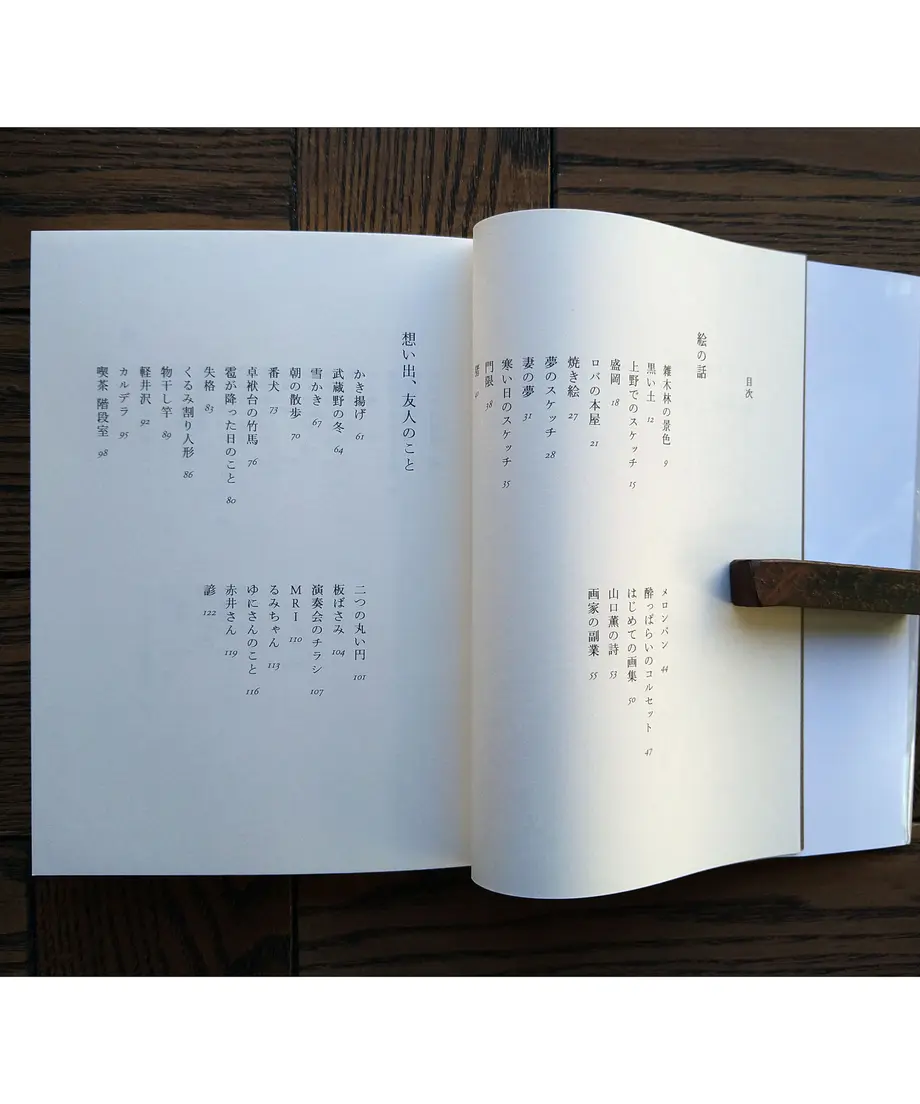 目次
絵の話
雑木林の景色 9
黒い土 12
上野でのスケッチ 15
盛岡 18
ロバの本屋 21
焼き絵 27
夢のスケッチ 28
妻の夢 31
寒い日のスケッチ 35
門限 38
メロンパン 44
酔っぱらいのコルセット 47
はじめての画集 50
山口薫の詩 53
画家の副業 55
想い出、友人のこと
かき揚げ 61
武蔵野の冬 64
雪かき 67
朝の散歩 70
番犬 73
卓袱台の竹馬 76
雹が降った日のこと 80
失格 83
くるみ割り人形 86
物干し竿 89
軽井沢 92
カルデラ 95
喫茶 階段室 98
二つの丸い円 101
板ばさみ 104
演奏会のチラシ 107
MRI 110
るみちゃん 113
ゆにさんのこと 116
赤井さん 119
諺 122